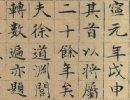 寧元年戊申
其首以將屬
二十餘年矣
夫徐道淵聞
轉數遍亦題